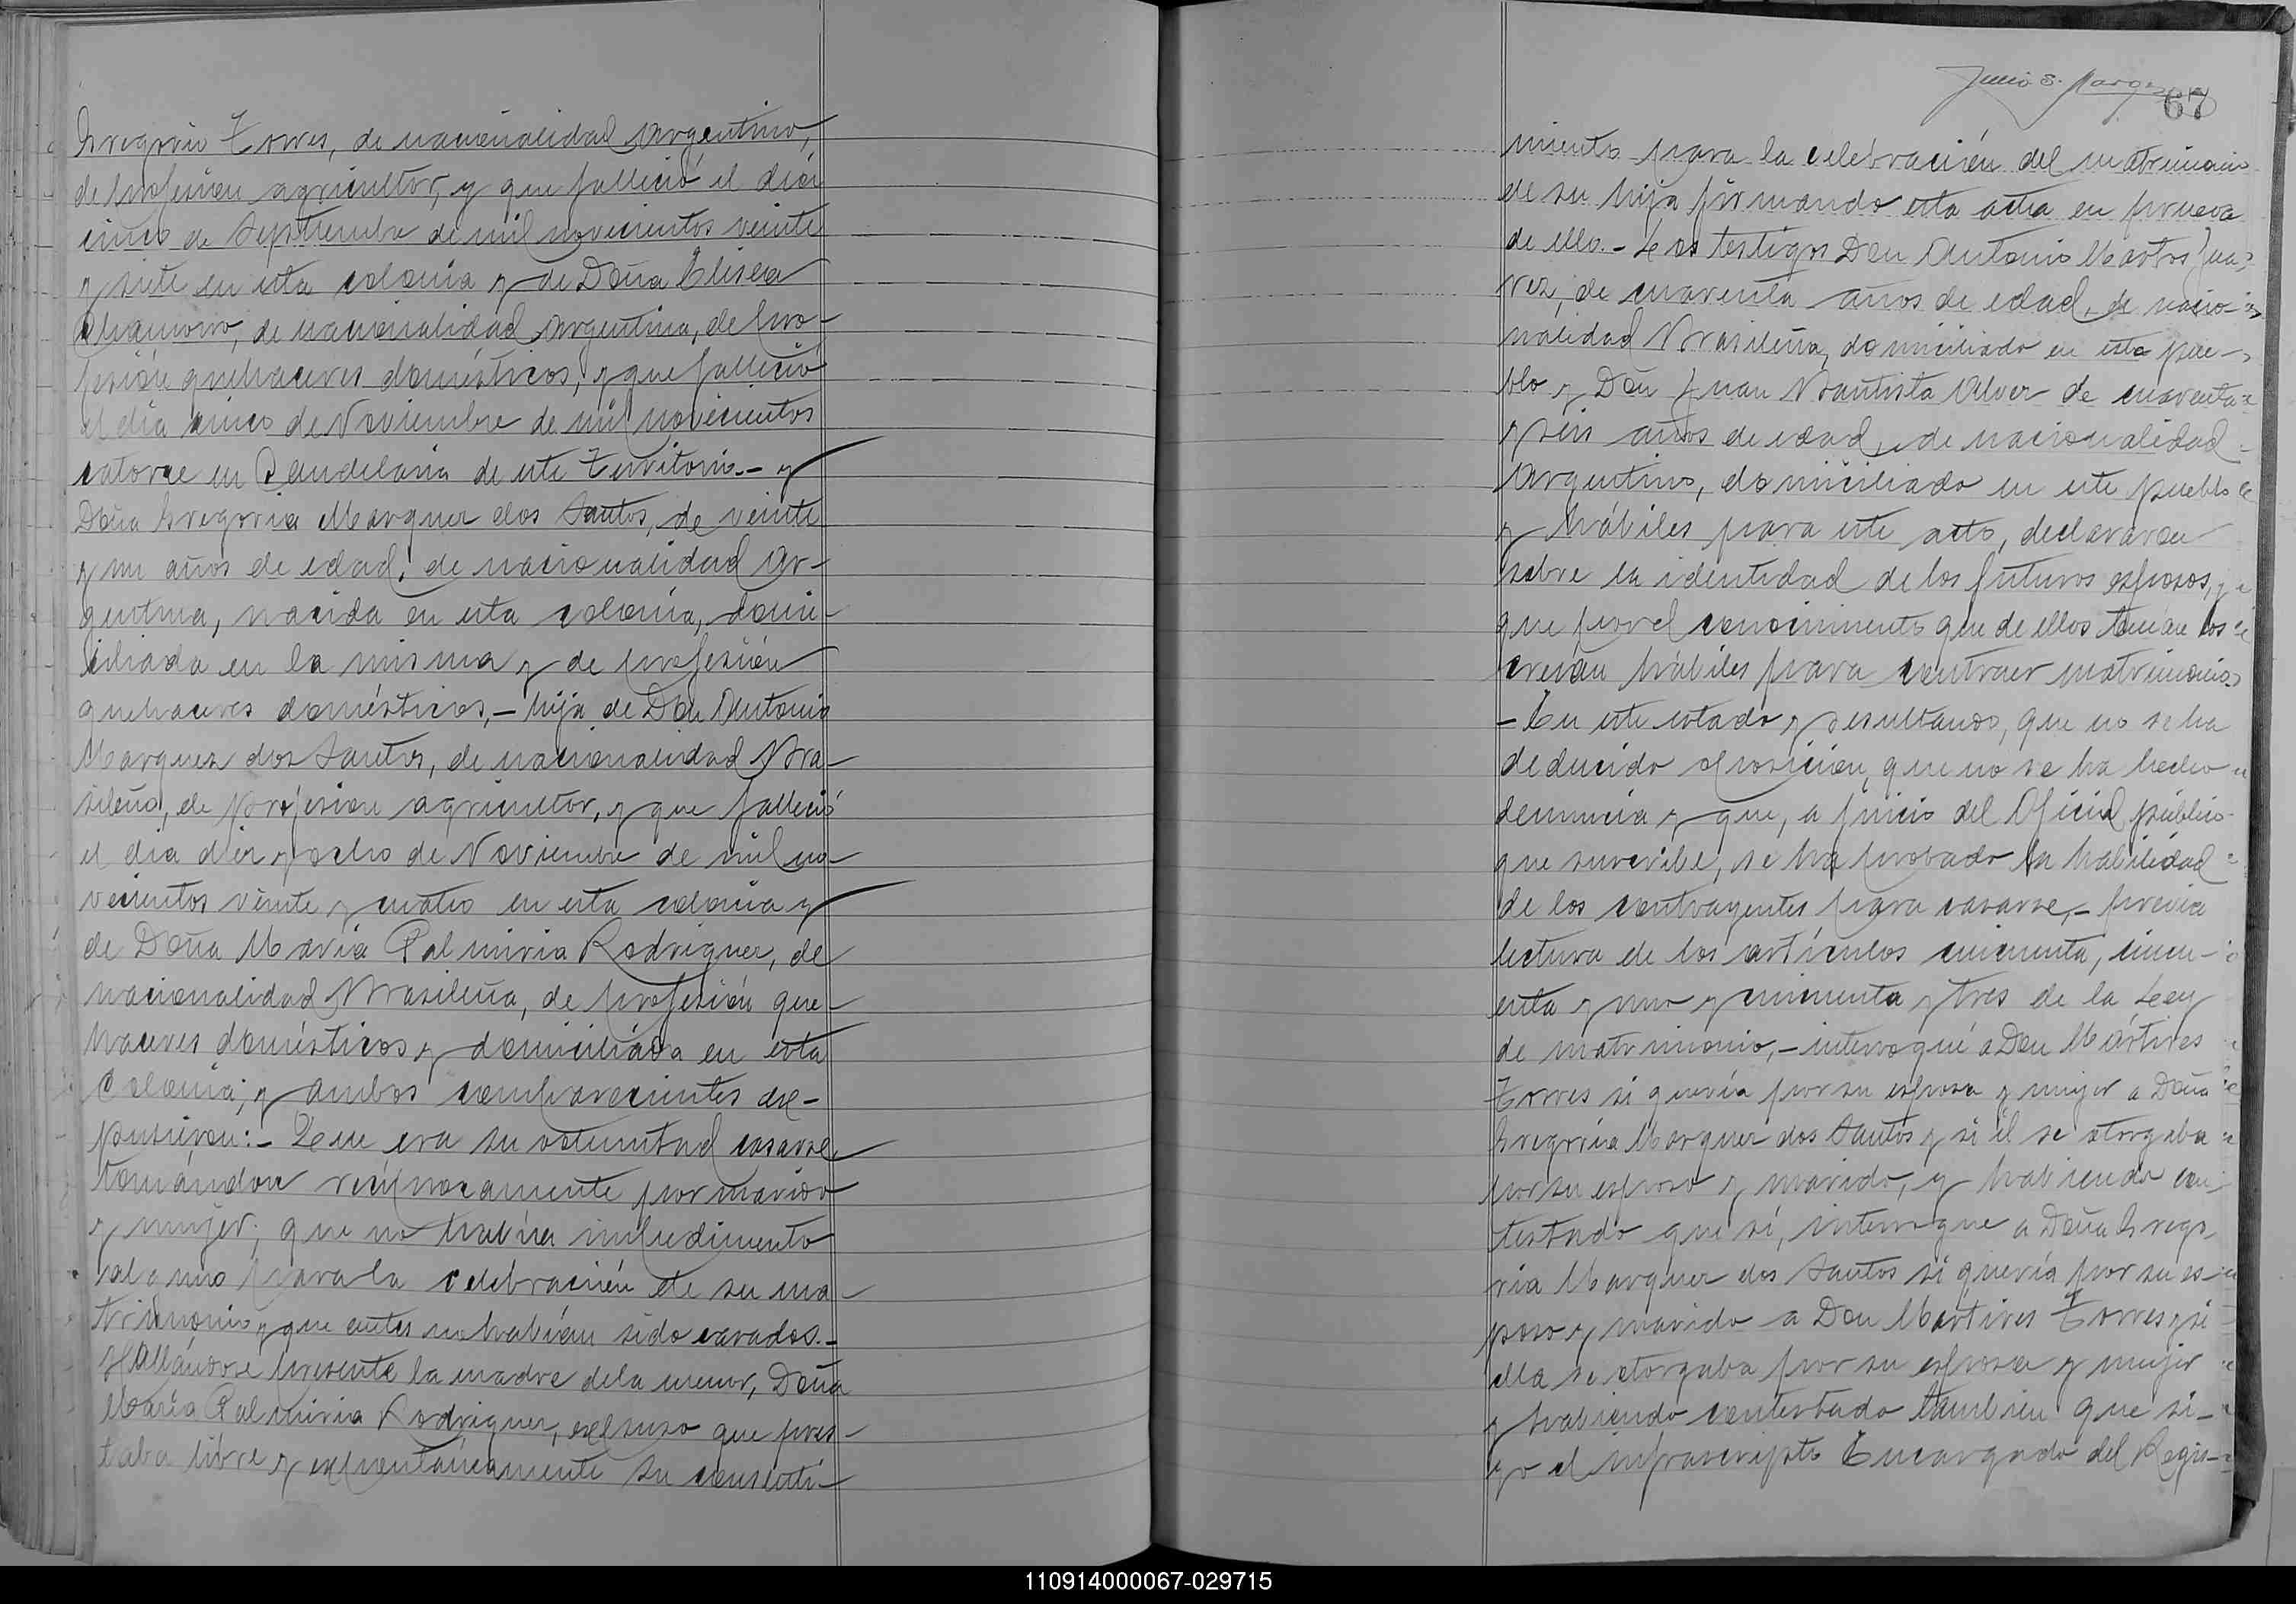 Gregorio Torres, de nacionalidad Argentino,
de profesion agricultor, y que falleció el día
cinco de Septiembre de mil novecientos veinte
y siete en esta colonia y de Doña Elisea
Chamorro, de nacionalidad Argentina, de pro-
fesión quehaceres domésticos, y que falleció
el día cinco de Noviembre de mil novecientos
catorce en Candelaria de este Territorio.- y
Doña Gregoria Marquez dos Santos, de veinte
y un años de edad, de nacionalidad Ar-
gentina, nacida en esta colonia, domi-
ciliada en la misma y de profesión
quehaceres domésticos,- hija de Don Antonio
Marquez dos Santos, de nacionalidad Bra-
sileña, de profesion agricultor, y que falleció
el dia diez y ocho de Noviembre de mil no-
vecientos veinte y cuatro en esta colonia y
de Doña María Palmiria Rodriguez, de
nacionalidad Brasileña, de profesión que-
haceres domésticos y domiciliada en esta
Colonia; y ambos comparecientes ex-
pusieron:- Que era su voluntad casarse
tomándose recíprocamente por marido
y mujer; que no habia impedimento
alguno para la celebración de su ma-
trimonio y que antes no habían sido casados.-
Hallándose presente la madre de la menor, Doña
María Palmiria Rodriguez, expuso que pres-
taba libre y expontáneamente su consenti-
Julio S. Marquez
67
miento para la celebración del matrimonio
de su hija firmando esta acta en prueva
de ello.- Los testigos Don Antonio Martos Jua-
rez, de cuarenta años de edad, de nacio-
nalidad Brasileña, domiciliado en este pue-
blo y Don Juan Bautista Alver de cuarenta
y seis años de edad, de nacionalidad
Argentino, domiciliado en este pueblo
y hábiles para este acto, declararon
sobre la identidad de los futuros esposos, y
que por el conocimiento que de ellos tenían los
creían hábiles para contraer matrimonio.
- En este estado y resultando, que no se ha
deducido oposición, que no se ha hecho
denuncia y que, a juicio del Oficial público
que suscribe, se ha probado la habilidad
de los contrayentes para casarse,- previa
lectura de los artículos cincuenta, cincu-
enta y uno y cincuenta y tres de la Ley
de matrimonio,- interrogué a Don Mártires
Torres si quería por su esposa y mujer a Doña
Gregoria Marquez dos Santos y si él se otorgaba
por su esposo y marido, y habiendo con-
testado que sí, interrogue a Doña Grego
ria Marquez dos Santos si quería por su es-
poso y marido a Don Mártires Torres y si
ella se otorgaba por su esposa y mujer
y habiendo contestado tambien que si-
yo el infrascripto Encargado del Regis-
110914000067-029715